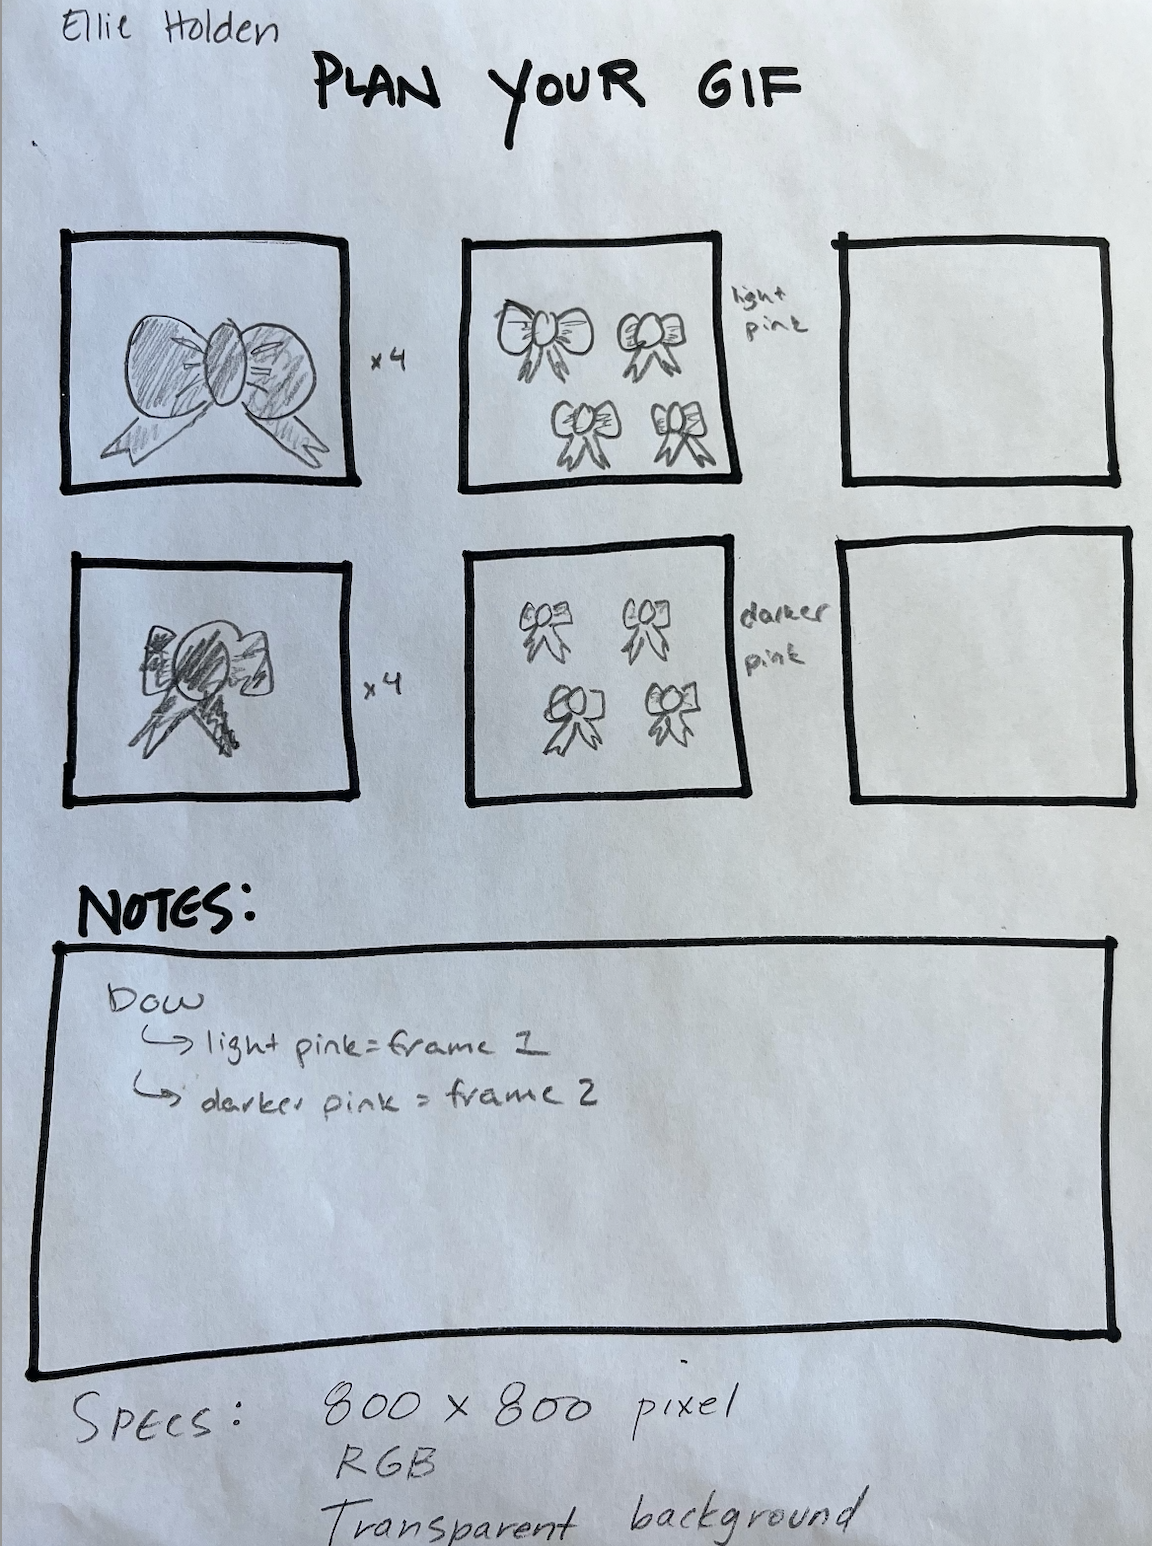 Ellie Holden
PLAN YOUR GIF
x4
light
pink
x4
darker
pink
NOTES:
Bow
↳ light pink = frame 1
↳ darker pink = frame 2
SPECS: 800 x 800 pixel
RGB
Transparent background